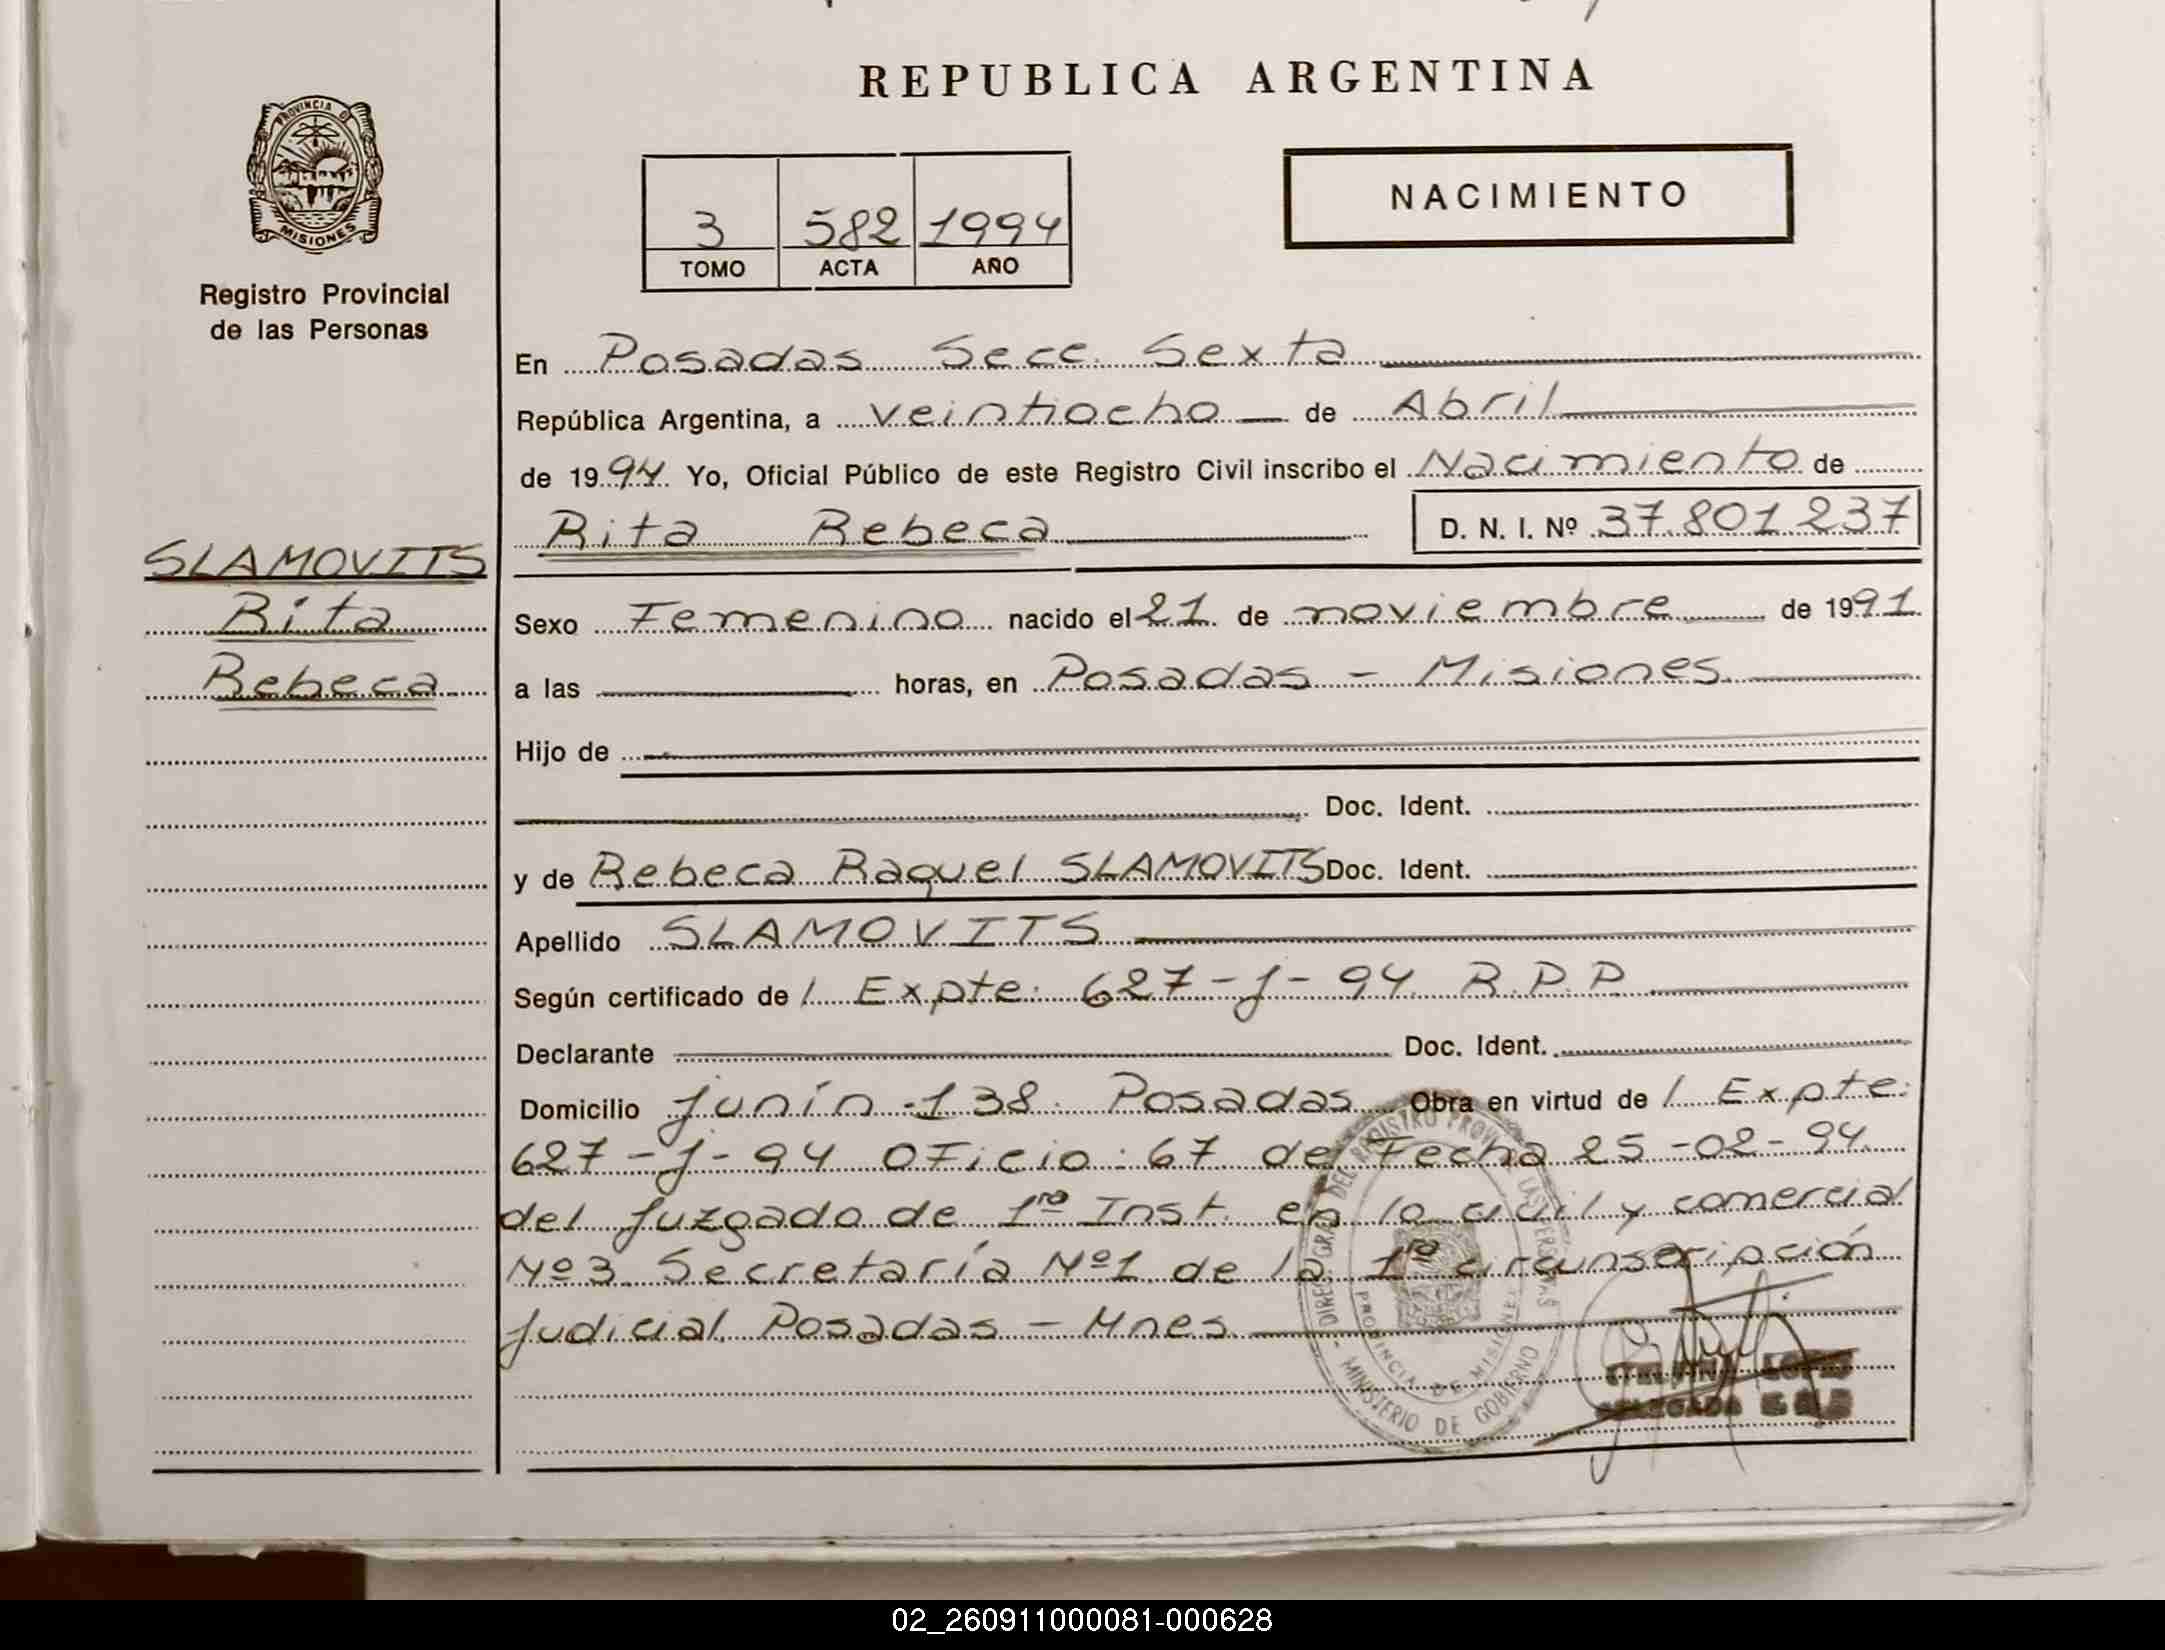 REPUBLICA ARGENTINA
PROVINCIA D
MISIONES
Registro Provincial
de las Personas
3 582 1994
TOMO ACTA AÑO
NACIMIENTO
En Posadas Secc. Sexta
República Argentina, a veintiocho de Abril
de 1994 Yo, Oficial Público de este Registro Civil inscribo el Nacimiento de
Rita Rebeca D. N. I. Nº 37.801.237
SLAMOVITS
Rita
Rebeca
Sexo Femenino nacido el 21 de noviembre de 1991
a las horas, en Posadas - Misiones
Hijo de
Doc. Ident.
y de Rebeca Raquel SLAMOVITS Doc. Ident.
Apellido SLAMOVITS
Según certificado de / Expte. 627-J-94 R.P.P
Declarante Doc. Ident.
Domicilio Junín 138 Posadas Obra en virtud de / Expte:
627-J-94 Oficio: 67 de Fecha 25-02-94
del Juzgado de 1ra Inst. en lo civil y comercial
Nº3 Secretaría Nº1 de la 1ra circunscripción
Judicial Posadas - Mnes
DIREC. GRAL DEL REGISTRO PROV. LAS PERSONAS
PROVINCIA DE MISIONES
- MINISTERIO DE GOBIERNO
LOPEZ
DELEGADA
02_260911000081-000628